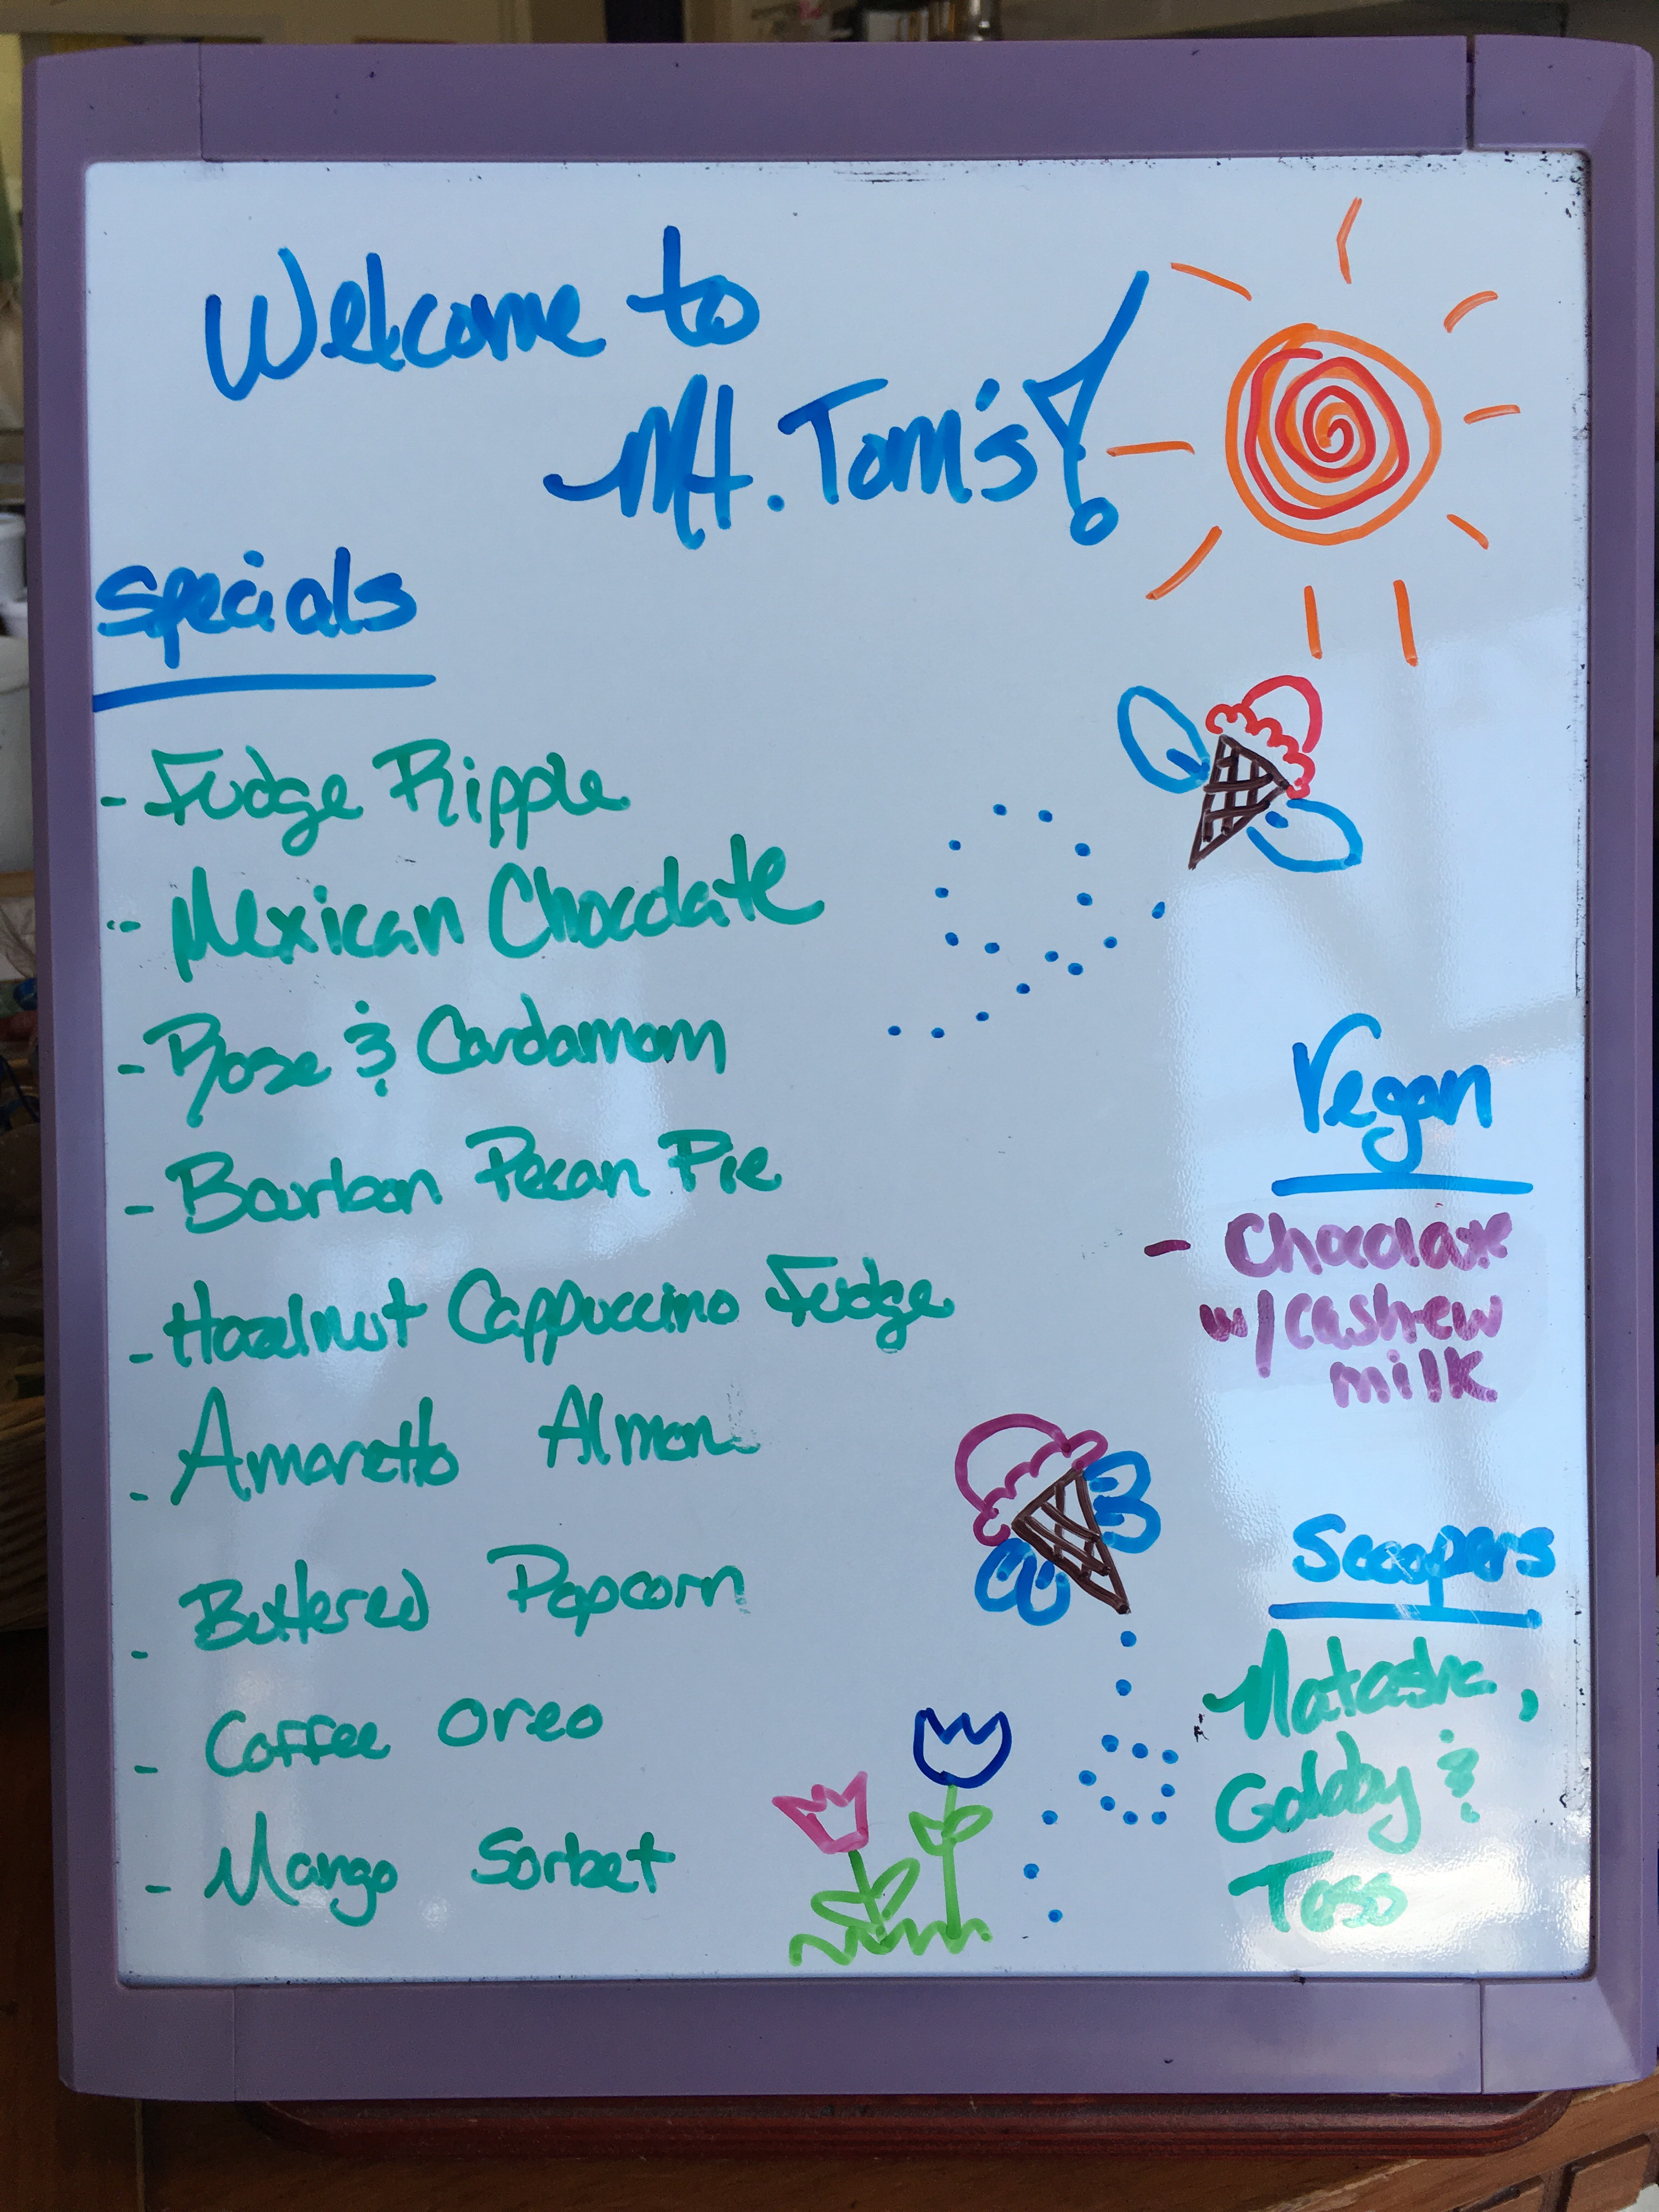 Welcome to
Mt. Tom's!
Specials
- Fudge Ripple
- Mexican Chocolate
- Rose & Cardamom
- Bourbon Pecan Pie
- Hazelnut Cappuccino Fudge
- Amaretto Almon
- Buttered Popcorn
- Coffee Oreo
- Mango Sorbet
Vegan
- Chocolate
w/ cashew
milk
Scoopers
Natasha,
&
Tess